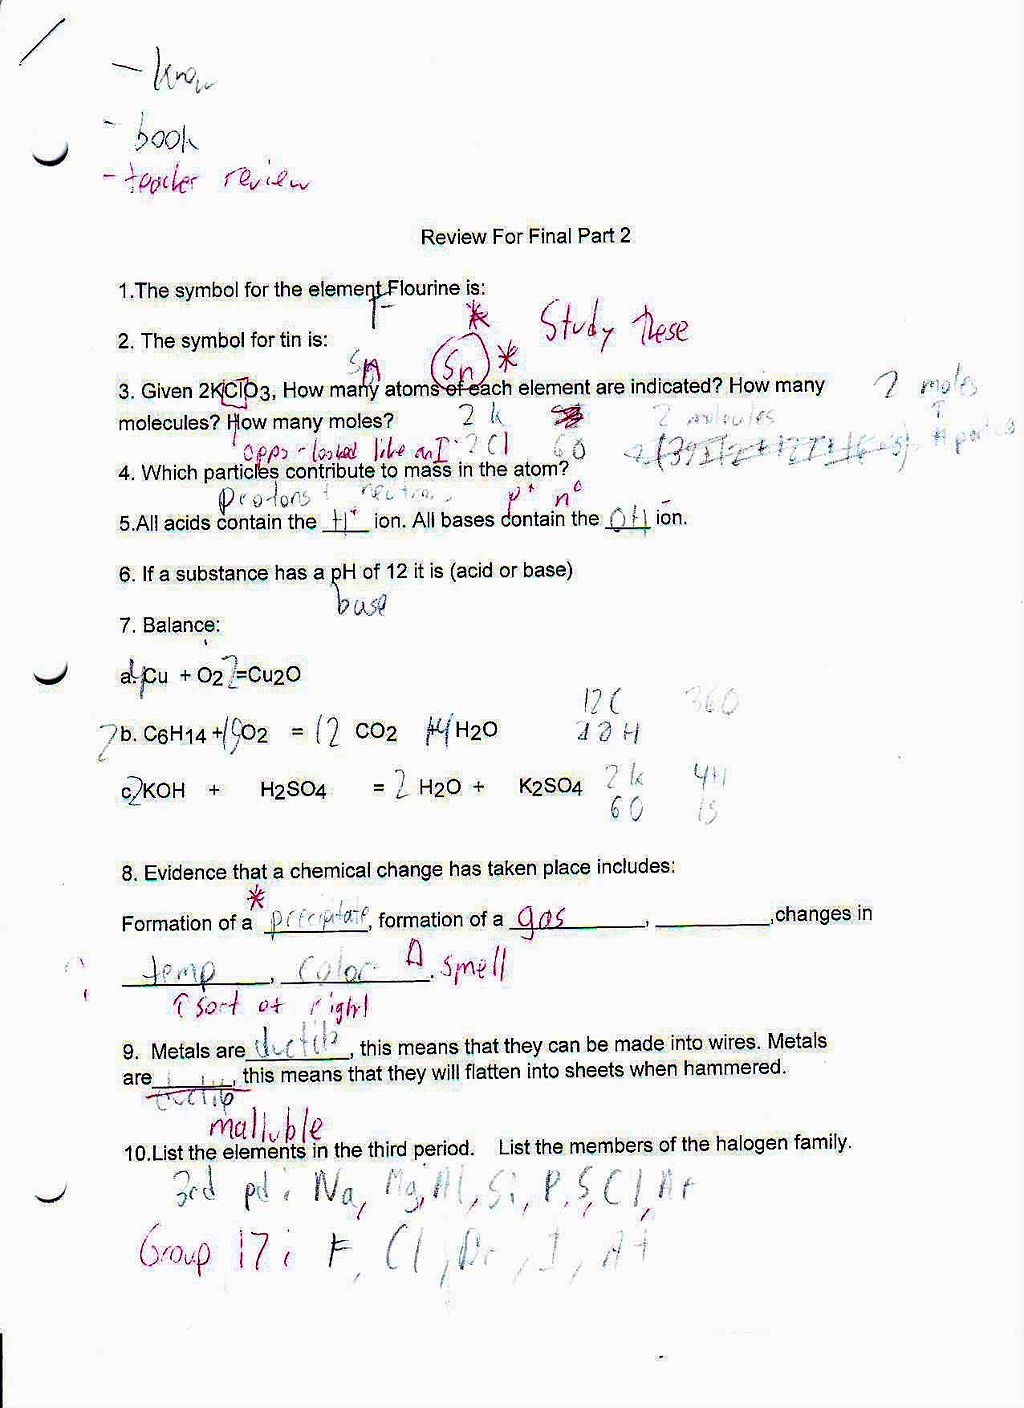 - know
- book
- teacher review
Review For Final Part 2
1.The symbol for the element Flourine is:
F
2. The symbol for tin is:
Sn
Sn
* Study these
*
3. Given 2KClO3, How many atoms of each element are indicated? How many
molecules? How many moles?
2 K
2 molecules
2 moles
opps - looked like an I
2 Cl
6 O
4. Which particles contribute to mass in the atom?
protons +
p+ n°
5.All acids contain the H+ ion. All bases contain the OH- ion.
6. If a substance has a pH of 12 it is (acid or base)
base
7. Balance:
a. 4Cu + O2 2=Cu2O
2 b. C6H14 + 19O2 = 12 CO2 14 H2O
12 C
28 H
c. 2KOH + H2SO4 = 2 H2O + K2SO4
2 K
6 O
4H
1S
8. Evidence that a chemical change has taken place includes:
*
Formation of a precipitate, formation of a gas, ,changes in
temp, color. smell
↑ sort of right
9. Metals are ductile, this means that they can be made into wires. Metals
are , this means that they will flatten into sheets when hammered.
malluble
10.List the elements in the third period. List the members of the halogen family.
3rd pd: Na, Mg, Al, Si, P, S, Cl, Ar
Group 17: F, Cl, Br, I, At